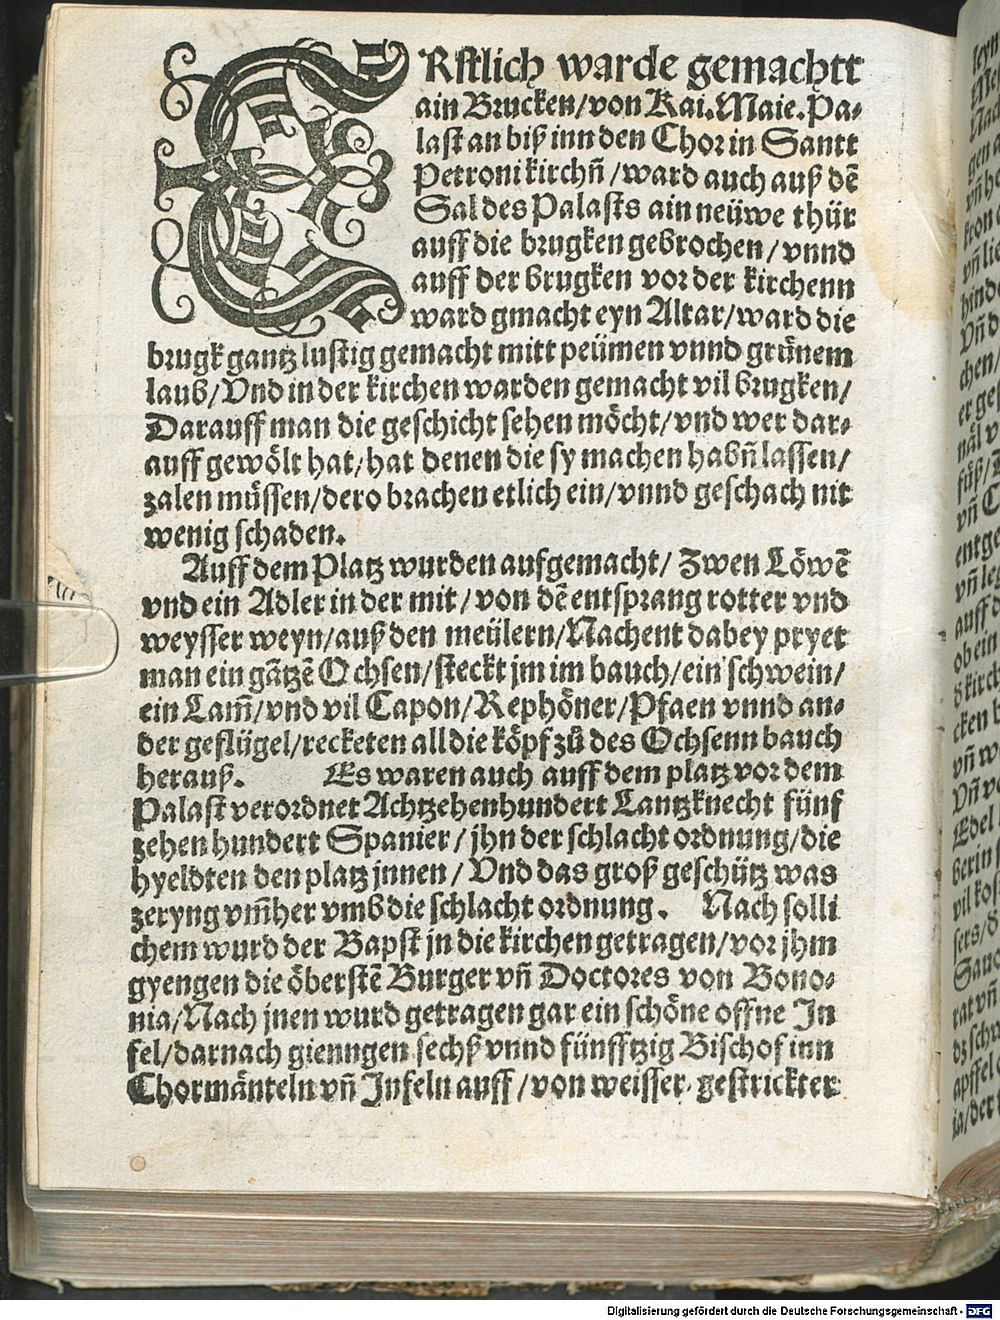 ERstlich warde gemachtt
ain Brucken/von Kai.Maie.Pa⸗
last an biß inn den Chor in Santt
Petroni kirchñ/ward auch auß dē
Sal des Palasts ain neüwe thür
auff die brugken gebrochen/vnnd
auff der brugken vor der kirchenn
ward gmacht eyn Altar/ward die
brugk gantz lustig gemacht mitt peümen vnnd grünem
laub/Vnd in der kirchen warden gemacht vil brugken/
Darauff man die geschicht sehen möcht/vnd wer dar⸗
auff gewölt hat/hat denen die sy machen habñ lassen/
zalen müssen/dero brachen etlich ein/vnnd geschach nit
wenig schaden.
Auff dem Platz wurden aufgemacht/Zwen Löwē
vnd ein Adler in der mit/von dē entsprang rotter vnd
weysser weyn/auß den meülern/Nachent dabey pryet
man ein gātzē Ochsen/steckt jm im bauch/ein schwein/
ein Lam̄/vnd vil Capon/Rephöner/Pfaen vnnd an⸗
der geflügel/recketen all die köpf zů des Ochsenn bauch
herauß. Es waren auch auff dem platz vor dem
Palast verordnet Achtzehenhundert Lantzknecht fünf
zehen hundert Spanier/jhn der schlacht ordnung/die
hyeldten den platz jnnen/Vnd das groß geschütz was
zeryng vm̄her vmb die schlacht ordnung. Nach solli
chem wurd der Bapst jn die kirchen getragen/vor jhm
gyengen die öberstē Burger vñ Doctores von Bono⸗
nia/Nach jnen wurd getragen gar ein schöne offne In
fel/darnach gienngen sechß vnnd fünfftzig Bischof inn
Chormänteln vñ Jnfeln auff/von weisser gestrickter
Digitalisierung gefördert durch die Deutsche Forschungsgemeinschaft - DFG